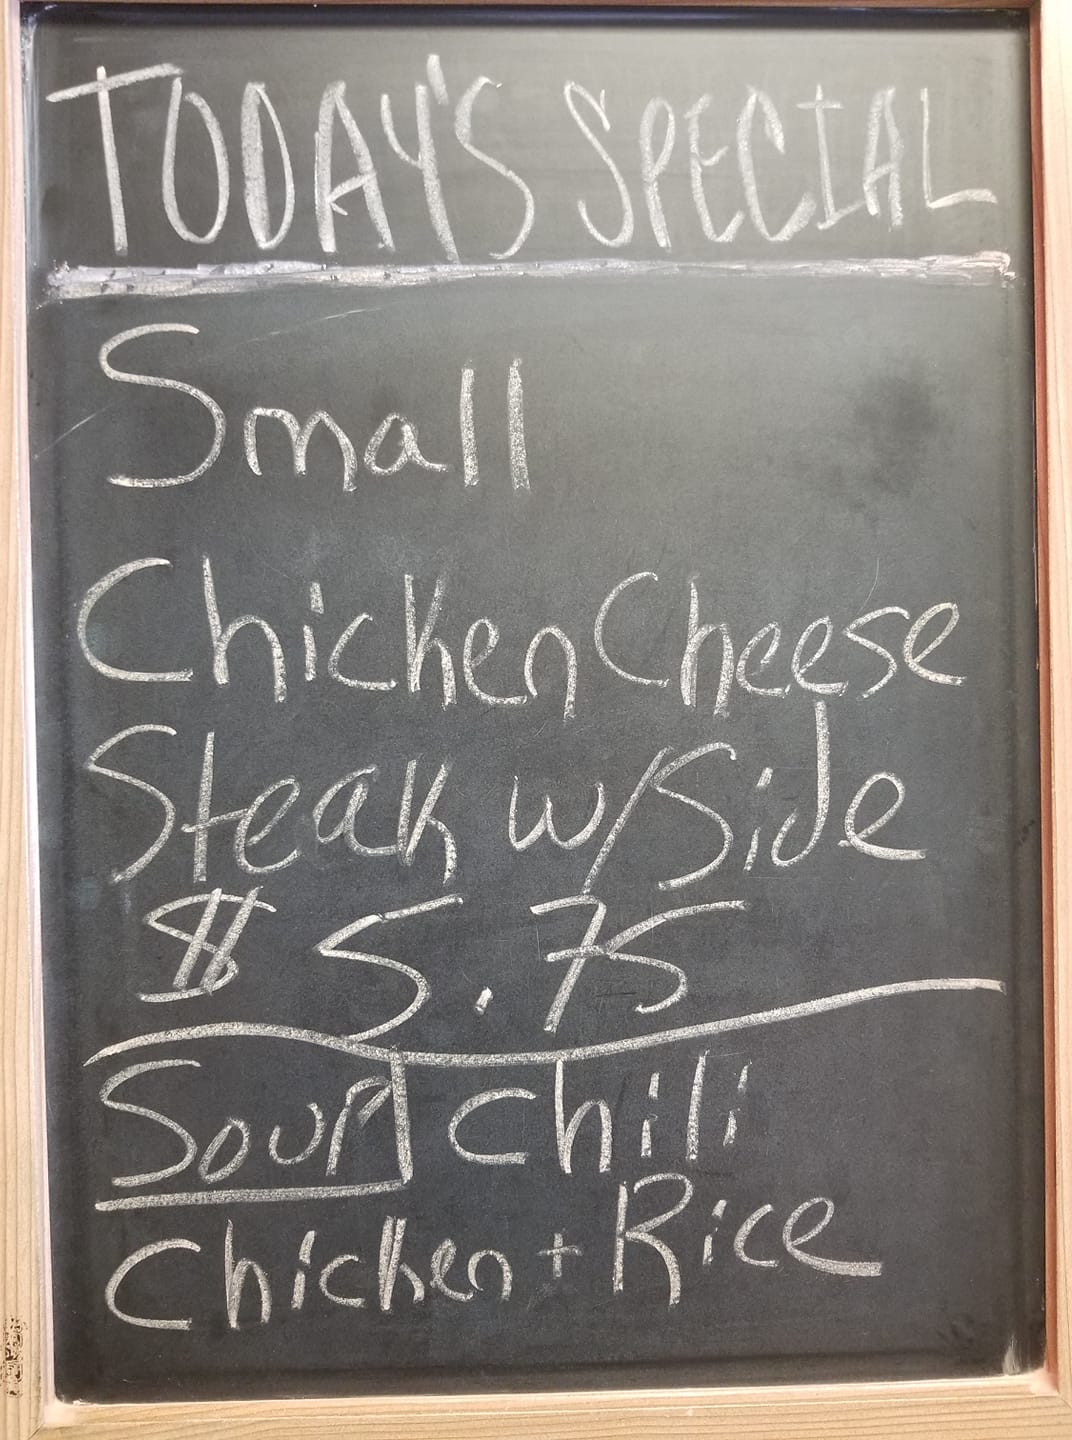 TODAY'S SPECIAL
Small
Chicken Cheese
Steak w/Side
$ 5.75
Soup Chili
Chicken + Rice